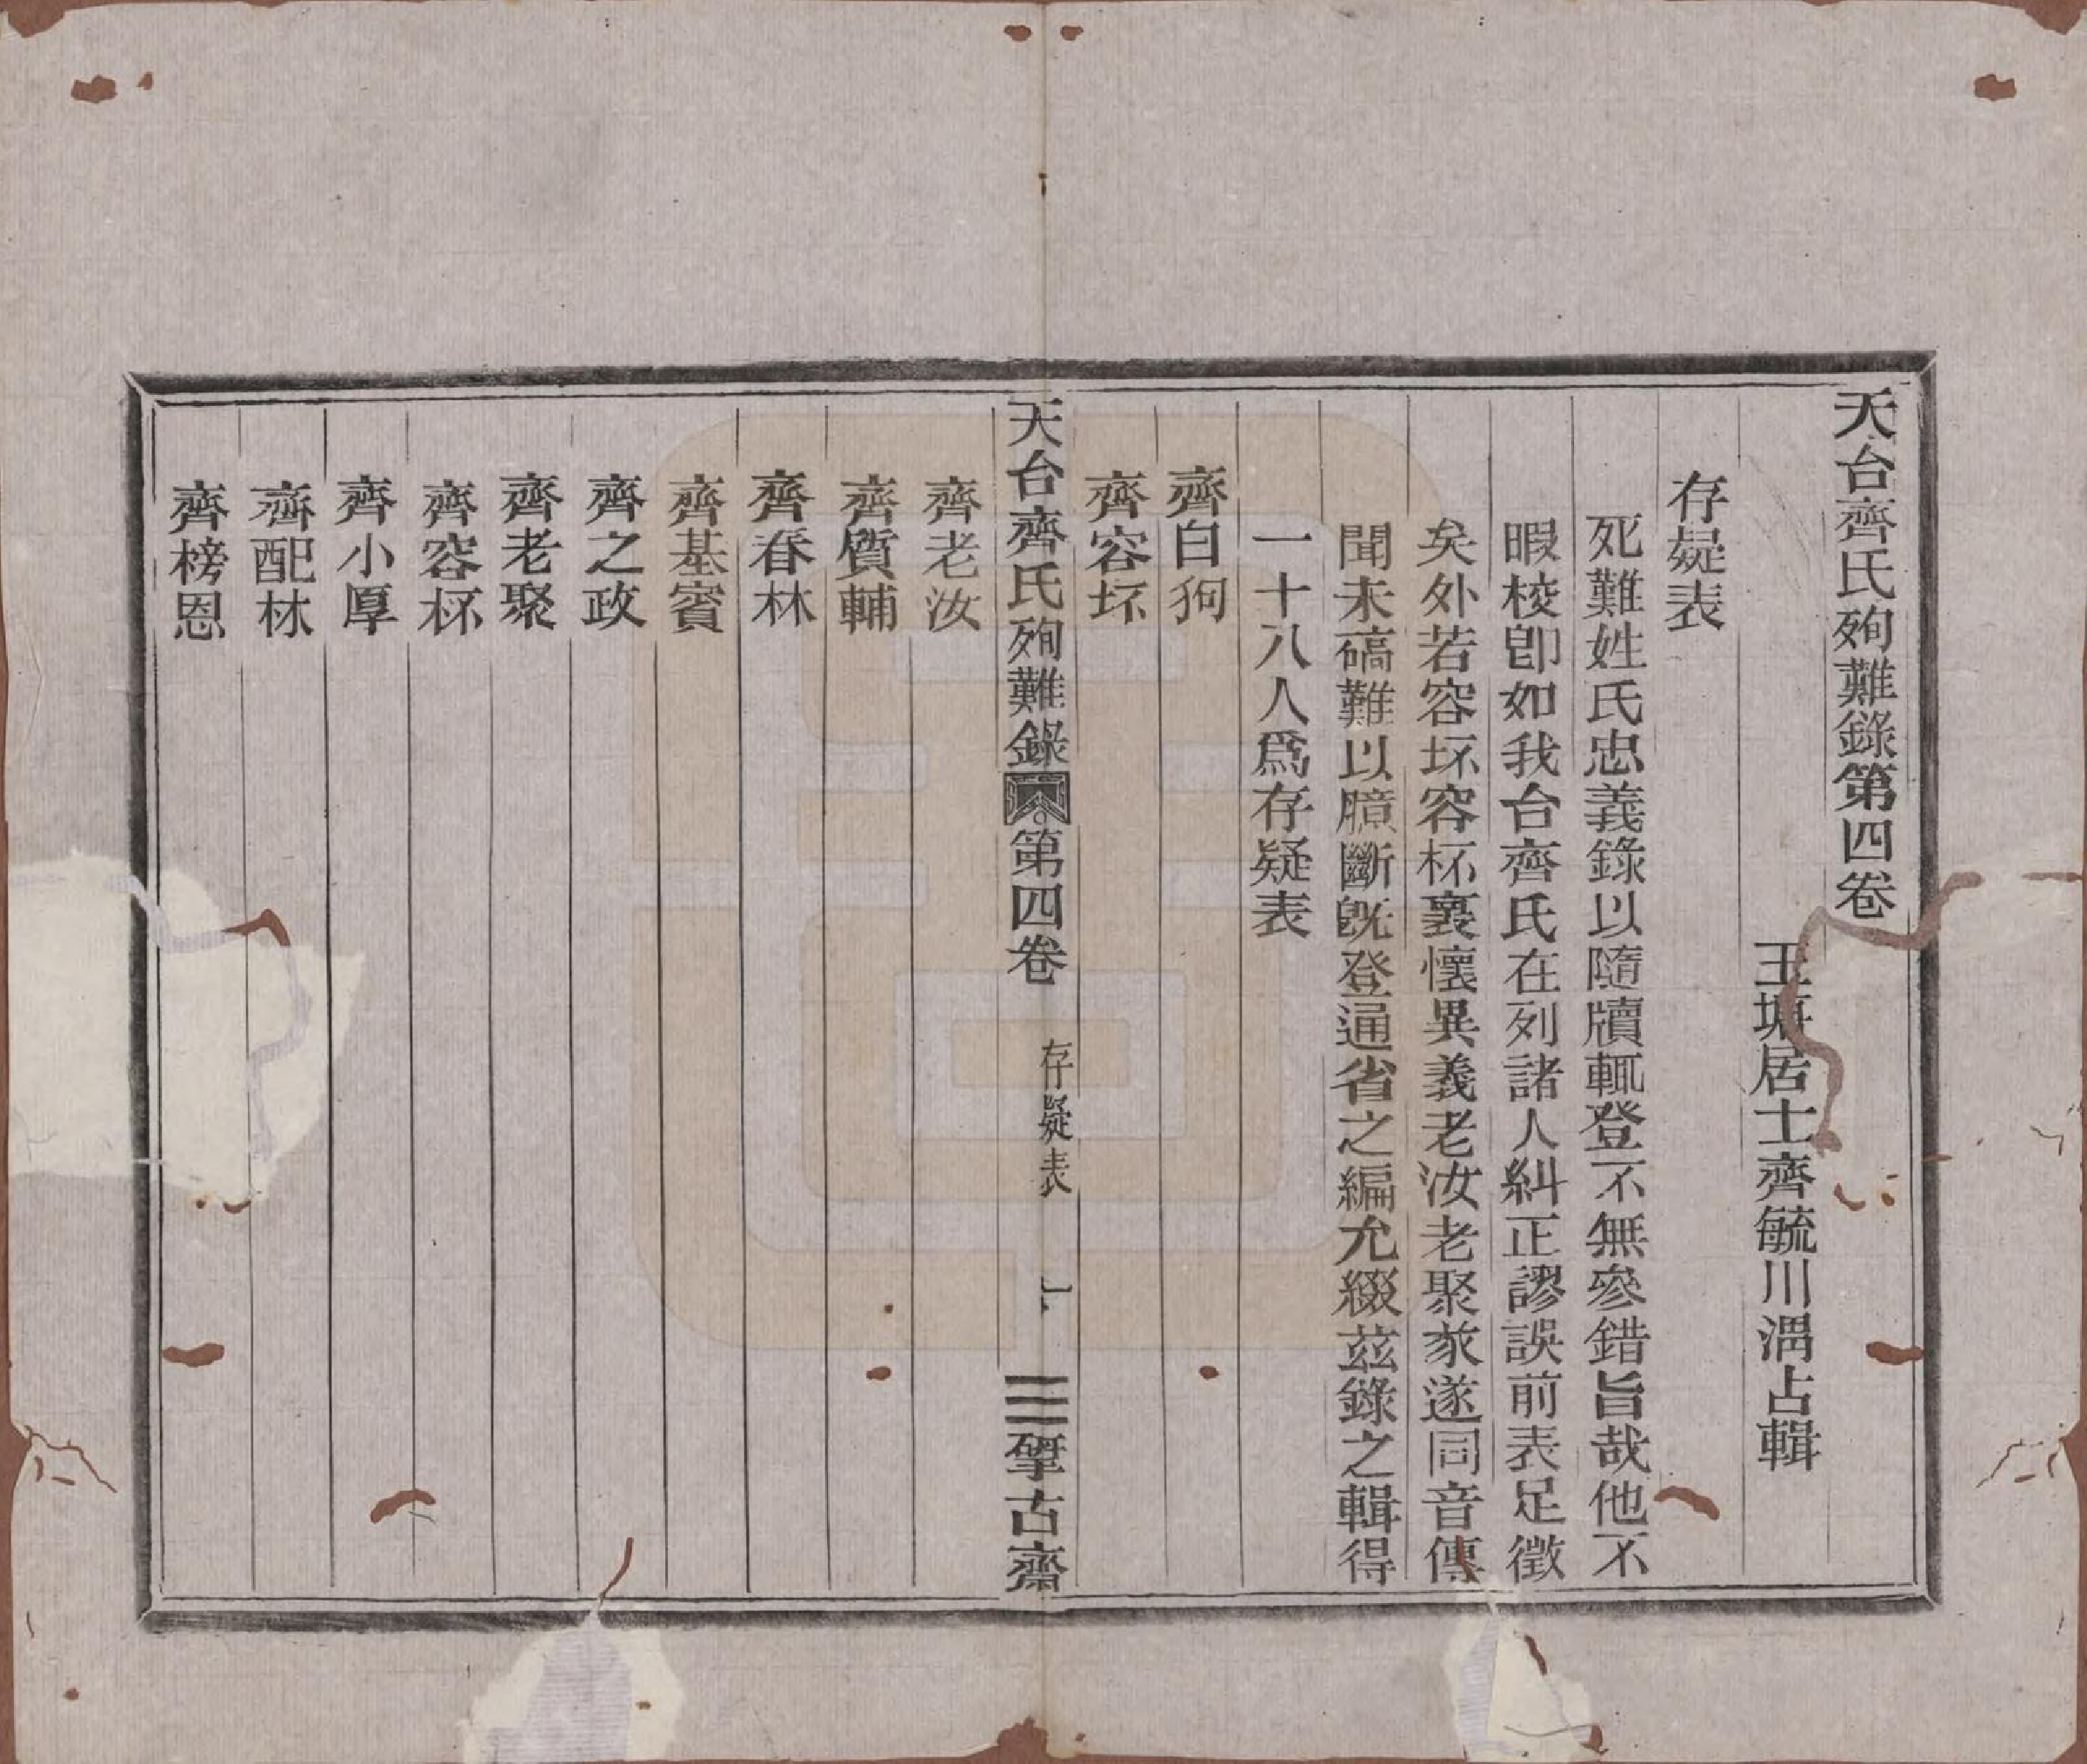 天台齊氏殉難錄第四卷
王塘居士齊毓川渭占輯
存疑表
死難姓氏忠義錄以隨牘輒登不無參錯旨哉他不
暇校卽如我台齊氏在列諸人糾正謬誤前表足徵
矣外若容坏容杯裏懷異義老汝老聚家遂同音傳
聞未碻難以臆斷旣登通省之編允綴茲錄之輯得
一十八人爲存疑表
齊白狗
齊容坏
天台齊氏殉難錄 第四卷 存疑表 一 揅古齋
齊老汝
齊質輔
齊春林
齊基賓
齊之政
齊老聚
齊容杯
齊小厚
齊配林
齊榜恩